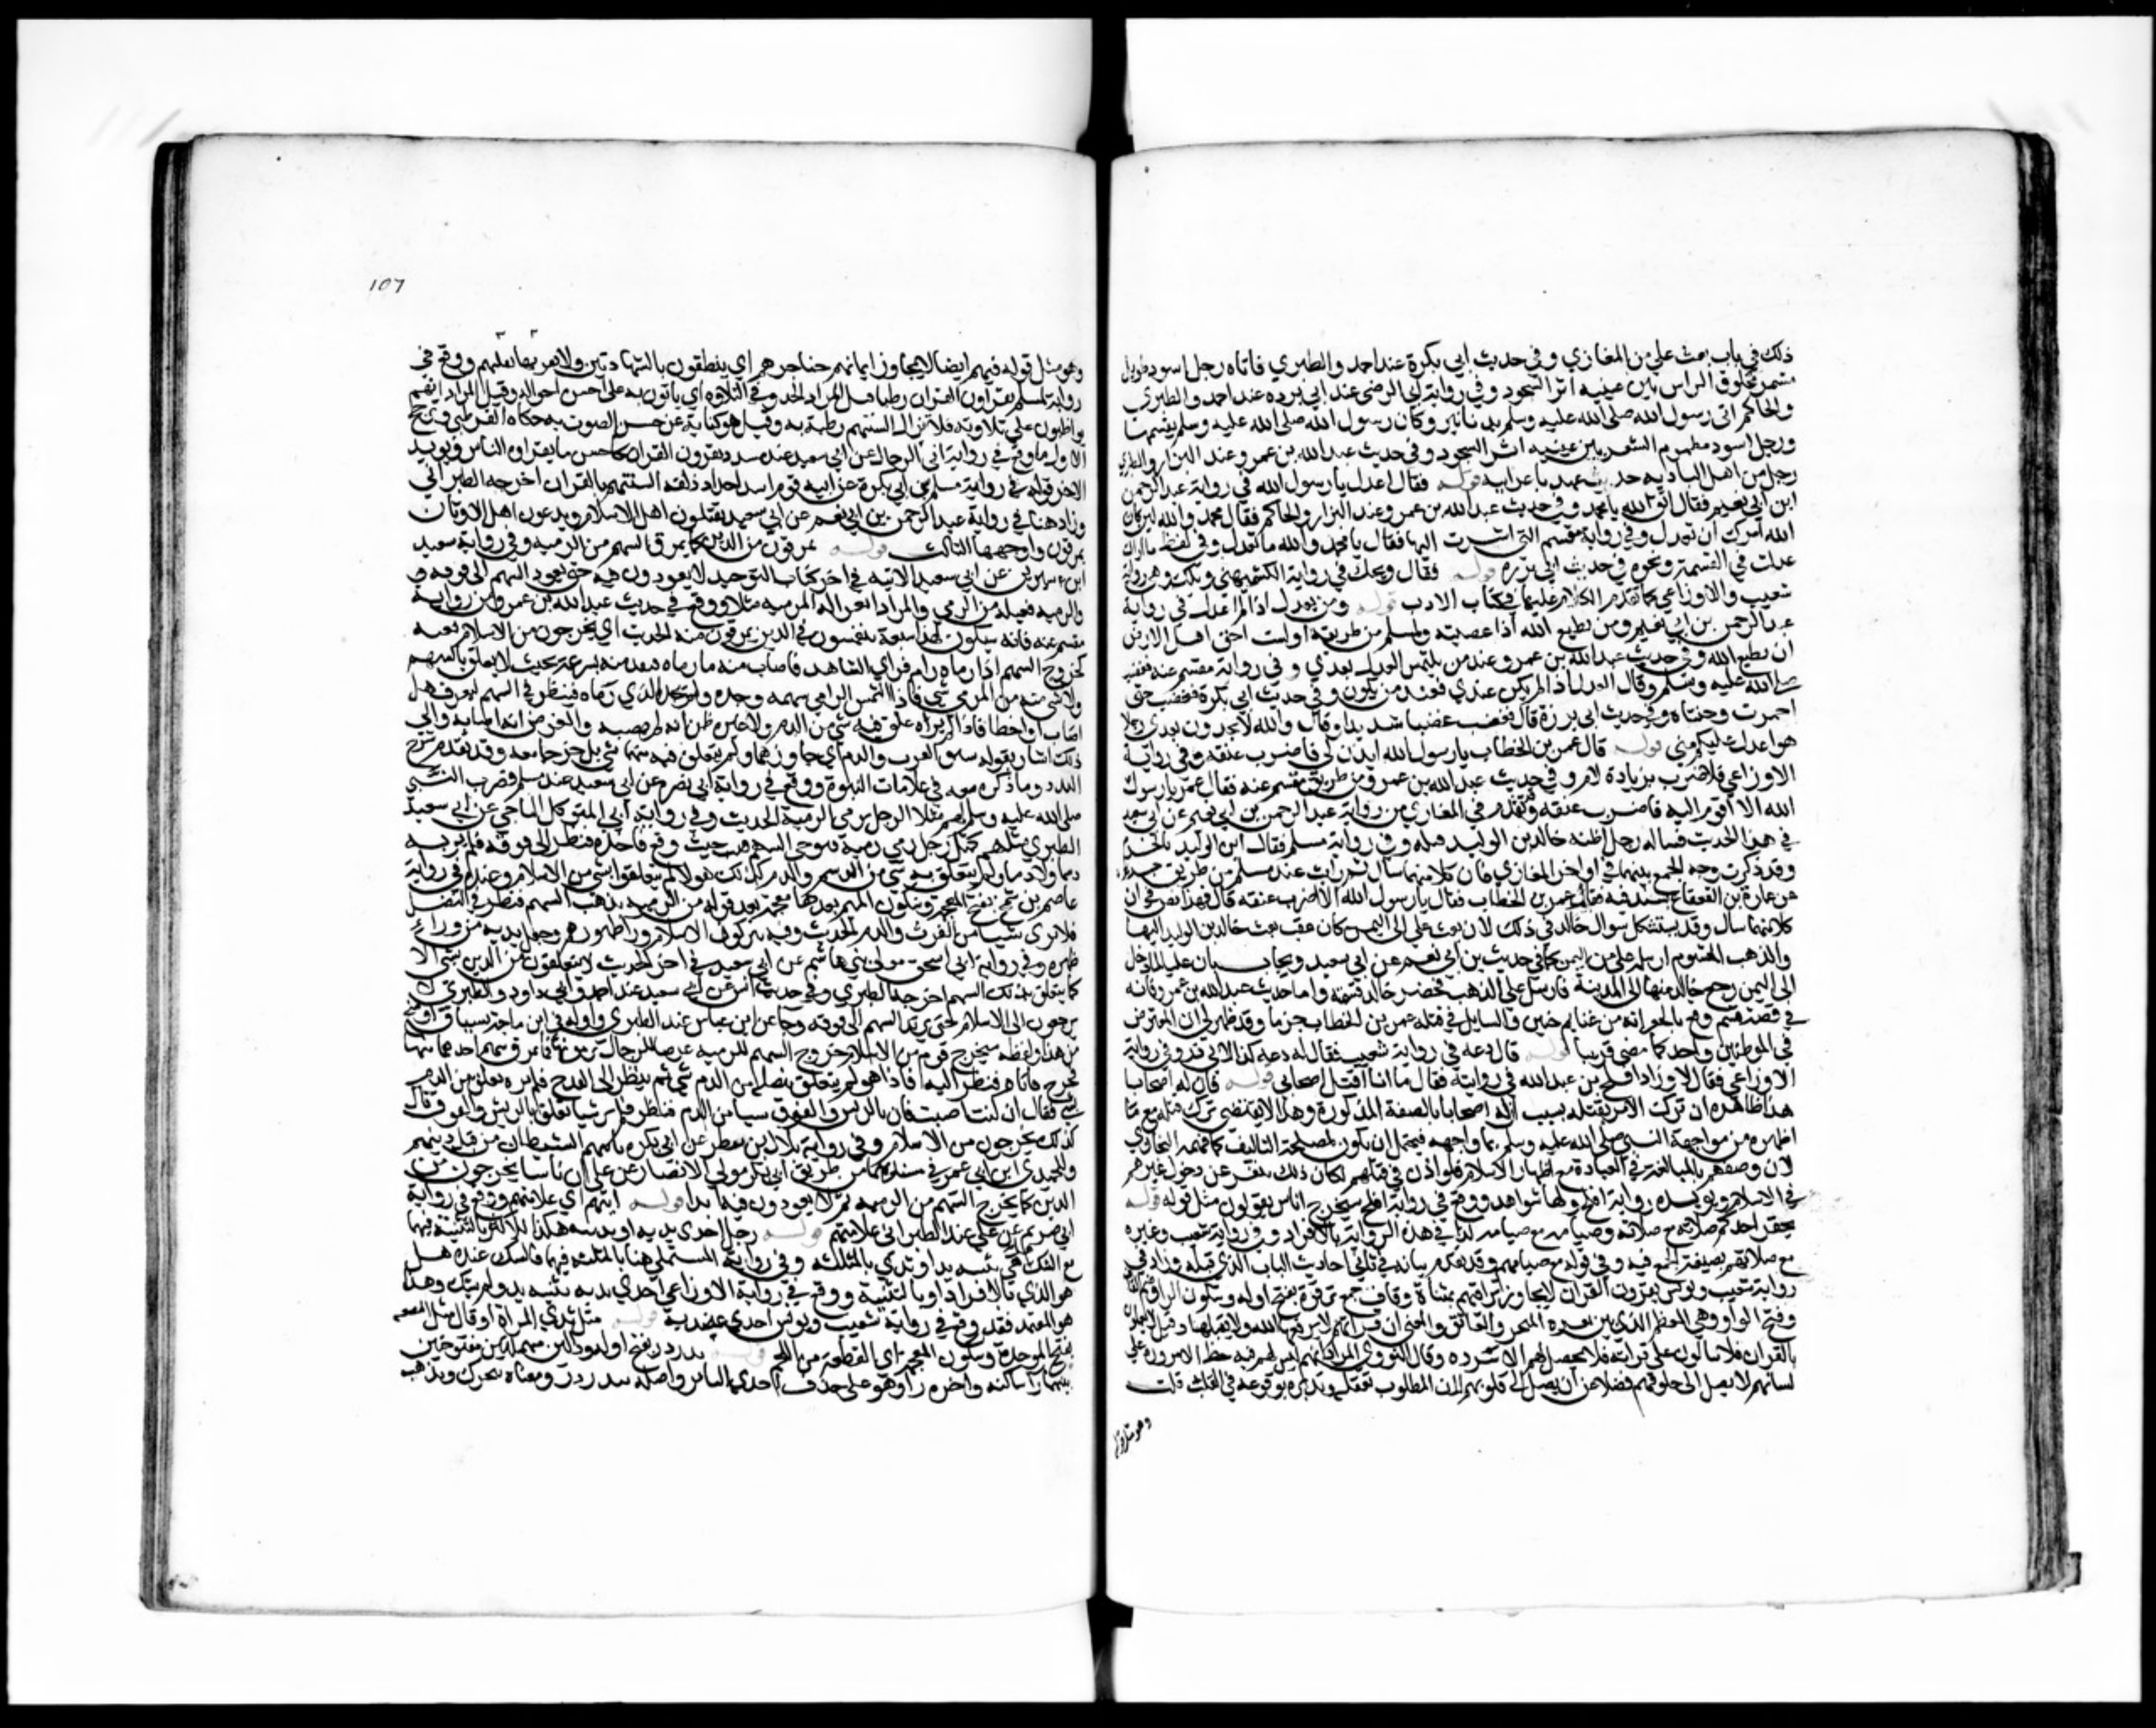 ذلك في باب بعث علي من المغازي وفي حديث أبي بكرة عند احمد والطبري فاتاه رجل اسود طويل
مشمر محلوق الراس بين عينيه اثر السجود وفي رواية ابي الوضي عند ابي برده عند احمد والطبري
والحاكم اتى رسول الله صلى الله عليه وسلم بدنانير وكان رسول الله صلى الله عليه وسلم يقسمها
ورجل اسود مطموم الشعر بين عينيه اثر السجود وفي حديث عبد الله بن عمرو عند البزار والطبري
رجل من اهل الباديه حديث عهد باعرابيه قوله فقال اعدل يا رسول الله في رواية عبد الرحمن
ابن ابي نعيم فقال اتق الله يا محمد وفي حديث عبد الله بن عمرو عند البزار والحاكم فقال محمد والله لين كان
الله امرك ان تعدل وفي رواية مقسم التي اشرت اليها فقال يا محمد والله ما تعدل وفي لفظ ما اراك
عدلت في القسمة ونحوه في حديث ابي برزه قوله فقال ويحك في رواية الكشميهني ويلك وهي رواية
شعيب والاوزاعي كما تقدم الكلام عليها في كتاب الادب قوله ومن يعدل اذا لم اعدل في رواية
عبد الرحمن بن ابي نعيم ومن يطيع الله اذا عصيته ولمسلم من طريقه اولست احق اهل الارض
ان يطيع الله وفي حديث عبد الله بن عمرو عند من يلتمس العدل بعدي وفي رواية مقسم عنه فغضب
صلى الله عليه وسلم وقال العدل اذا لم يكن عندي فعند من يكون وفي حديث ابي بكرة فغضب حتى
احمرت وجنتاه وفي حديث ابي برزة قال فغضب غضبا شديدا وقال والله لا تجدون بعدي رجلا
هو اعدل عليكم مني قوله قال عمر بن الخطاب يا رسول الله ايذن لي فاضرب عنقه وفي رواية
الاوزاعي فلاضرب بزيادة لام وفي حديث عبد الله بن عمرو من طريق مقسم عنه فقال عمر يا رسول
الله الا اقوم اليه فاضرب عنقه وتقدم في المغازي من رواية عبد الرحمن بن ابي نعيم عن ابي سعيد
في هذا الحديث فساله رجل اظنه خالد بن الوليد قتله وفي رواية مسلم فقال ابن الوليد بالجزم
وقد ذكرت وجه الجمع بينهما في اواخر المغازي فان كلا منهما سال ثم رايت عند مسلم من طريق جرير
عن عمارة بن القعقاع بسنده فيه فقام عمر بن الخطاب فقال يا رسول الله الا اضرب عنقه قال فهذا نص في ان
كلا منهما سال وقد يستشكل سوال خالد في ذلك لان بعث علي الى اليمن كان عقب بعث خالد بن الوليد اليها
والذهب المقسوم ارسله علي من اليمن كما في حديث بن ابي نعم عن ابي سعيد ويجاب بان عليا لما دخل
الى اليمن رجع خالد منها الى المدينة فارسل علي الذهب فحضر خالد قسمته واما حديث عبد الله بن عمرو فانه
في قصة قسم وقع بالجعرانه من غنايم حنين والسايل في قتله عمر بن الخطاب جزما وقد ظهر لي ان المعترض
في الموطنين واحد كما مضى قريبا قوله قال دعه في رواية شعيب فقال له دعه كذا لابي ذر وفي رواية
الاوزاعي فقال لا وزاد افلح بن عبد الله في روايته فقال ما انا اقتل اصحابي قوله فان له اصحابا
هذا ظاهره ان ترك الامر بقتله بسبب ان له اصحابا بالصفة المذكورة وهذا لا يقتضي ترك قتله مع ما
اظهره من مواجهة النبي صلى الله عليه وسلم بما واجهه فيحتمل ان يكون لمصلحة التاليف كما فهمه البخاري
لان وصفهم بالمبالغة في العبادة مع اظهار الاسلام فلو اذن في قتلهم لكان ذلك ينفر عن دخول غيرهم
في الاسلام ويويده رواية افلح ولها شواهد ووقع في رواية افلح سيخرج اناس يقولون مثل قوله قوله
يحقر احدكم صلاته مع صلاته وصيامه مع صيامه كذا في هذه الرواية بالافراد وفي رواية شعيب وغيره
مع صلاتهم بصيغة الجمع فيه وفي قوله مع صيامهم وقد تقدم بيانه في ثاني احاديث الباب الذي قبله وزاد في
رواية شعيب ويونس يقرؤن القران لا يجاوز تراقيهم بمثناة وقاف جمع ترقوة بفتح اوله وسكون الرا وضم القاف
وفتح الواو وهي العظم الذي بين نقرة النحر والعاتق والمعنى ان قراتهم لا يرفعها الله ولا يقبلها وقيل لا يعملون
بالقران فلا يثابون على قراته فلا يحصل لهم الا سرده وقال النووي المراد انهم ليس لهم فيه حظ الا مروره على
لسانهم لا يصل الى حلوقهم فضلا عن ان يصل الى قلوبهم لان المطلوب تعقله وتدبره بوقوعه في القلب قلت
وهو مثل قوله
107
وهو مثل قوله فيهم ايضا لا يجاوز ايمانهم حناجرهم اي ينطقون بالشهادتين ولا تعرفها قلوبهم ووقع في
رواية لمسلم يقراون القران رطبا قيل المراد الحذق في التلاوه اي ياتون به على احسن احواله وقيل المراد انهم
يواظبون على تلاوته فلا تزال السنتهم رطبة به وقيل هو كناية عن حسن الصوت به حكاه القرطبي ويرجح
الاول ما وقع في رواية ابي الوداك عن ابي سعيد عند مسدد يقرؤن القران كاحسن ما يقراوه الناس ويويد
الاخر قوله في رواية مسلم بن ابي بكرة عن ابيه قوم اشداء احداء ذلقه السنتهم بالقران اخرجه الطبراني
وزاد هنا في رواية عبد الرحمن بن ابي نعم عن ابي سعيد يقتلون اهل الاسلام ويدعون اهل الاوثان
يمرقون واوجهها الثالث قوله يمرقون من الدين كما يمرق السهم من الرميه وفي رواية معبد
ابن سيرين عن ابي سعيد الاتيه في اخر كتاب التوحيد لا يعودون فيه حتى يعود السهم الى فوقه
والرميه فعيله من الرمي والمراد الغزاله المرميه مثلا ووقع في حديث عبد الله بن عمرو من رواية
مقسم عنه فانه سيكون لهذا شيعة يتعمقون في الدين يمرقون منه الحديث اي يخرجون من الاسلام بغتة
كخروج السهم اذا رماه رام قوي الساعد فاصاب ما رماه فنفذ منه بسرعة بحيث لا يعلق بالسهم
ولا بشي منه من المرمي شي فاذا التمس الرامي سهمه وجده ولم يجد الذي رماه فينظر في السهم ليعرف هل
اصاب او اخطا فاذا لم يره علق فيه شي من الدم ولا غيره ظن انه لم يصبه والفرض انه اصابه والى
ذلك اشار بقوله سبق الفرث والدم اي جاوزهما ولم يتعلق فيه منهما شي بل خرجا بعده وقد تقدم شرح
القذذ وما ذكره معه في علامات النبوة ووقع في رواية ابي نضرة عن ابي سعيد عند مسلم فضرب النبي
صلى الله عليه وسلم لهم مثلا الرجل يرمي الرمية الحديث وفي رواية ابي المتوكل الناجي عن ابي سعيد
الطبري مثلهم كمثل رجل رمى رمية فتوخى السهم حيث وقع فاخذه فنظر الى فوقه فلم ير به
دسما ولا دما ولم يتعلق به شي من الدسم والدم كذلك هولاء لم يتعلقوا بشي من الاسلام وعنده في رواية
عاصم بن شمخ بفتح المعجمة وسكون الميم بعدها معجمة بعد قوله من الرميه يذهب السهم فينظر في النصل
فلا يرى شيئا من الفرث والدم الحديث وفيه يتركون الاسلام ورا ظهورهم وجعل يديه من وراء
ظهره وفي رواية ابي اسحق مولى بني هاشم عن ابي سعيد في اخر الحديث لا يتعلقون من الدين بشي الا
كما يتعلق بذلك السهم اخرجه الطبري وفي حديث انس عن ابي سعيد عند احمد وابي داود والطبري لا
يرجعون الى الاسلام حتى يرتد السهم الى فوقه وجا عن ابن عباس عند الطبري واوله في ابن ماجة بسياق اوضح
من هذا ولفظه سيخرج قوم من الاسلام خروج السهم من الرميه عرضت للرجال فرموها فانمرق سهم احدهم منها
فخرج فاتاه فنظر اليه فاذا هو لم يتعلق بنصله من الدم شي ثم نظر الى القدح فلم يره تعلق من الدم
شي فقال ان كنت اصبت فان بالريش والفوق شيا من الدم فنظر فلم ير شيا تعلق بالريش والفوق قال
كذلك يخرجون من الاسلام وفي رواية بلال بن يقطر عن ابي بكره ياتيهم الشيطان من قبل دينهم
وللحميدي وابن ابي عمر في مسنديهما من طريق ابي بكر مولى الانصار عن علي ان ناسا يخرجون من
الدين كما يخرج السهم من الرميه ثم لا يعودون فيه ابدا قوله ايتهم اي علامتهم ووقع في رواية
ابي مريم عن علي عند الطبراني علامتهم قوله رجل احدى يديه او ثدييه هكذا للاكثر بالتثنية فيهما
مع الشك هل هي تثنية يد او ثدي بالمثلثة وفي رواية المستملي هنا بالمثلثة فيهما فالشك عنده هل
هو الثدي بالافراد او بالتثنية ووقع في رواية الاوزاعي احدى يديه تثنيه يد ولم يشك وهذا
هو المعتمد فقد وقع في رواية شعيب ويونس احدى عضديه قوله مثل ثدي المراة او قال مثل البضعه
بفتح الموحدة وسكون المعجمة اي القطعة من اللحم قوله تدردر بفتح اوله ودالين مهملتين مفتوحتين
بينهما را ساكنه واخره را وهو على حذف احدى التائين واصله تتدردر ومعناه تتحرك وتذهب